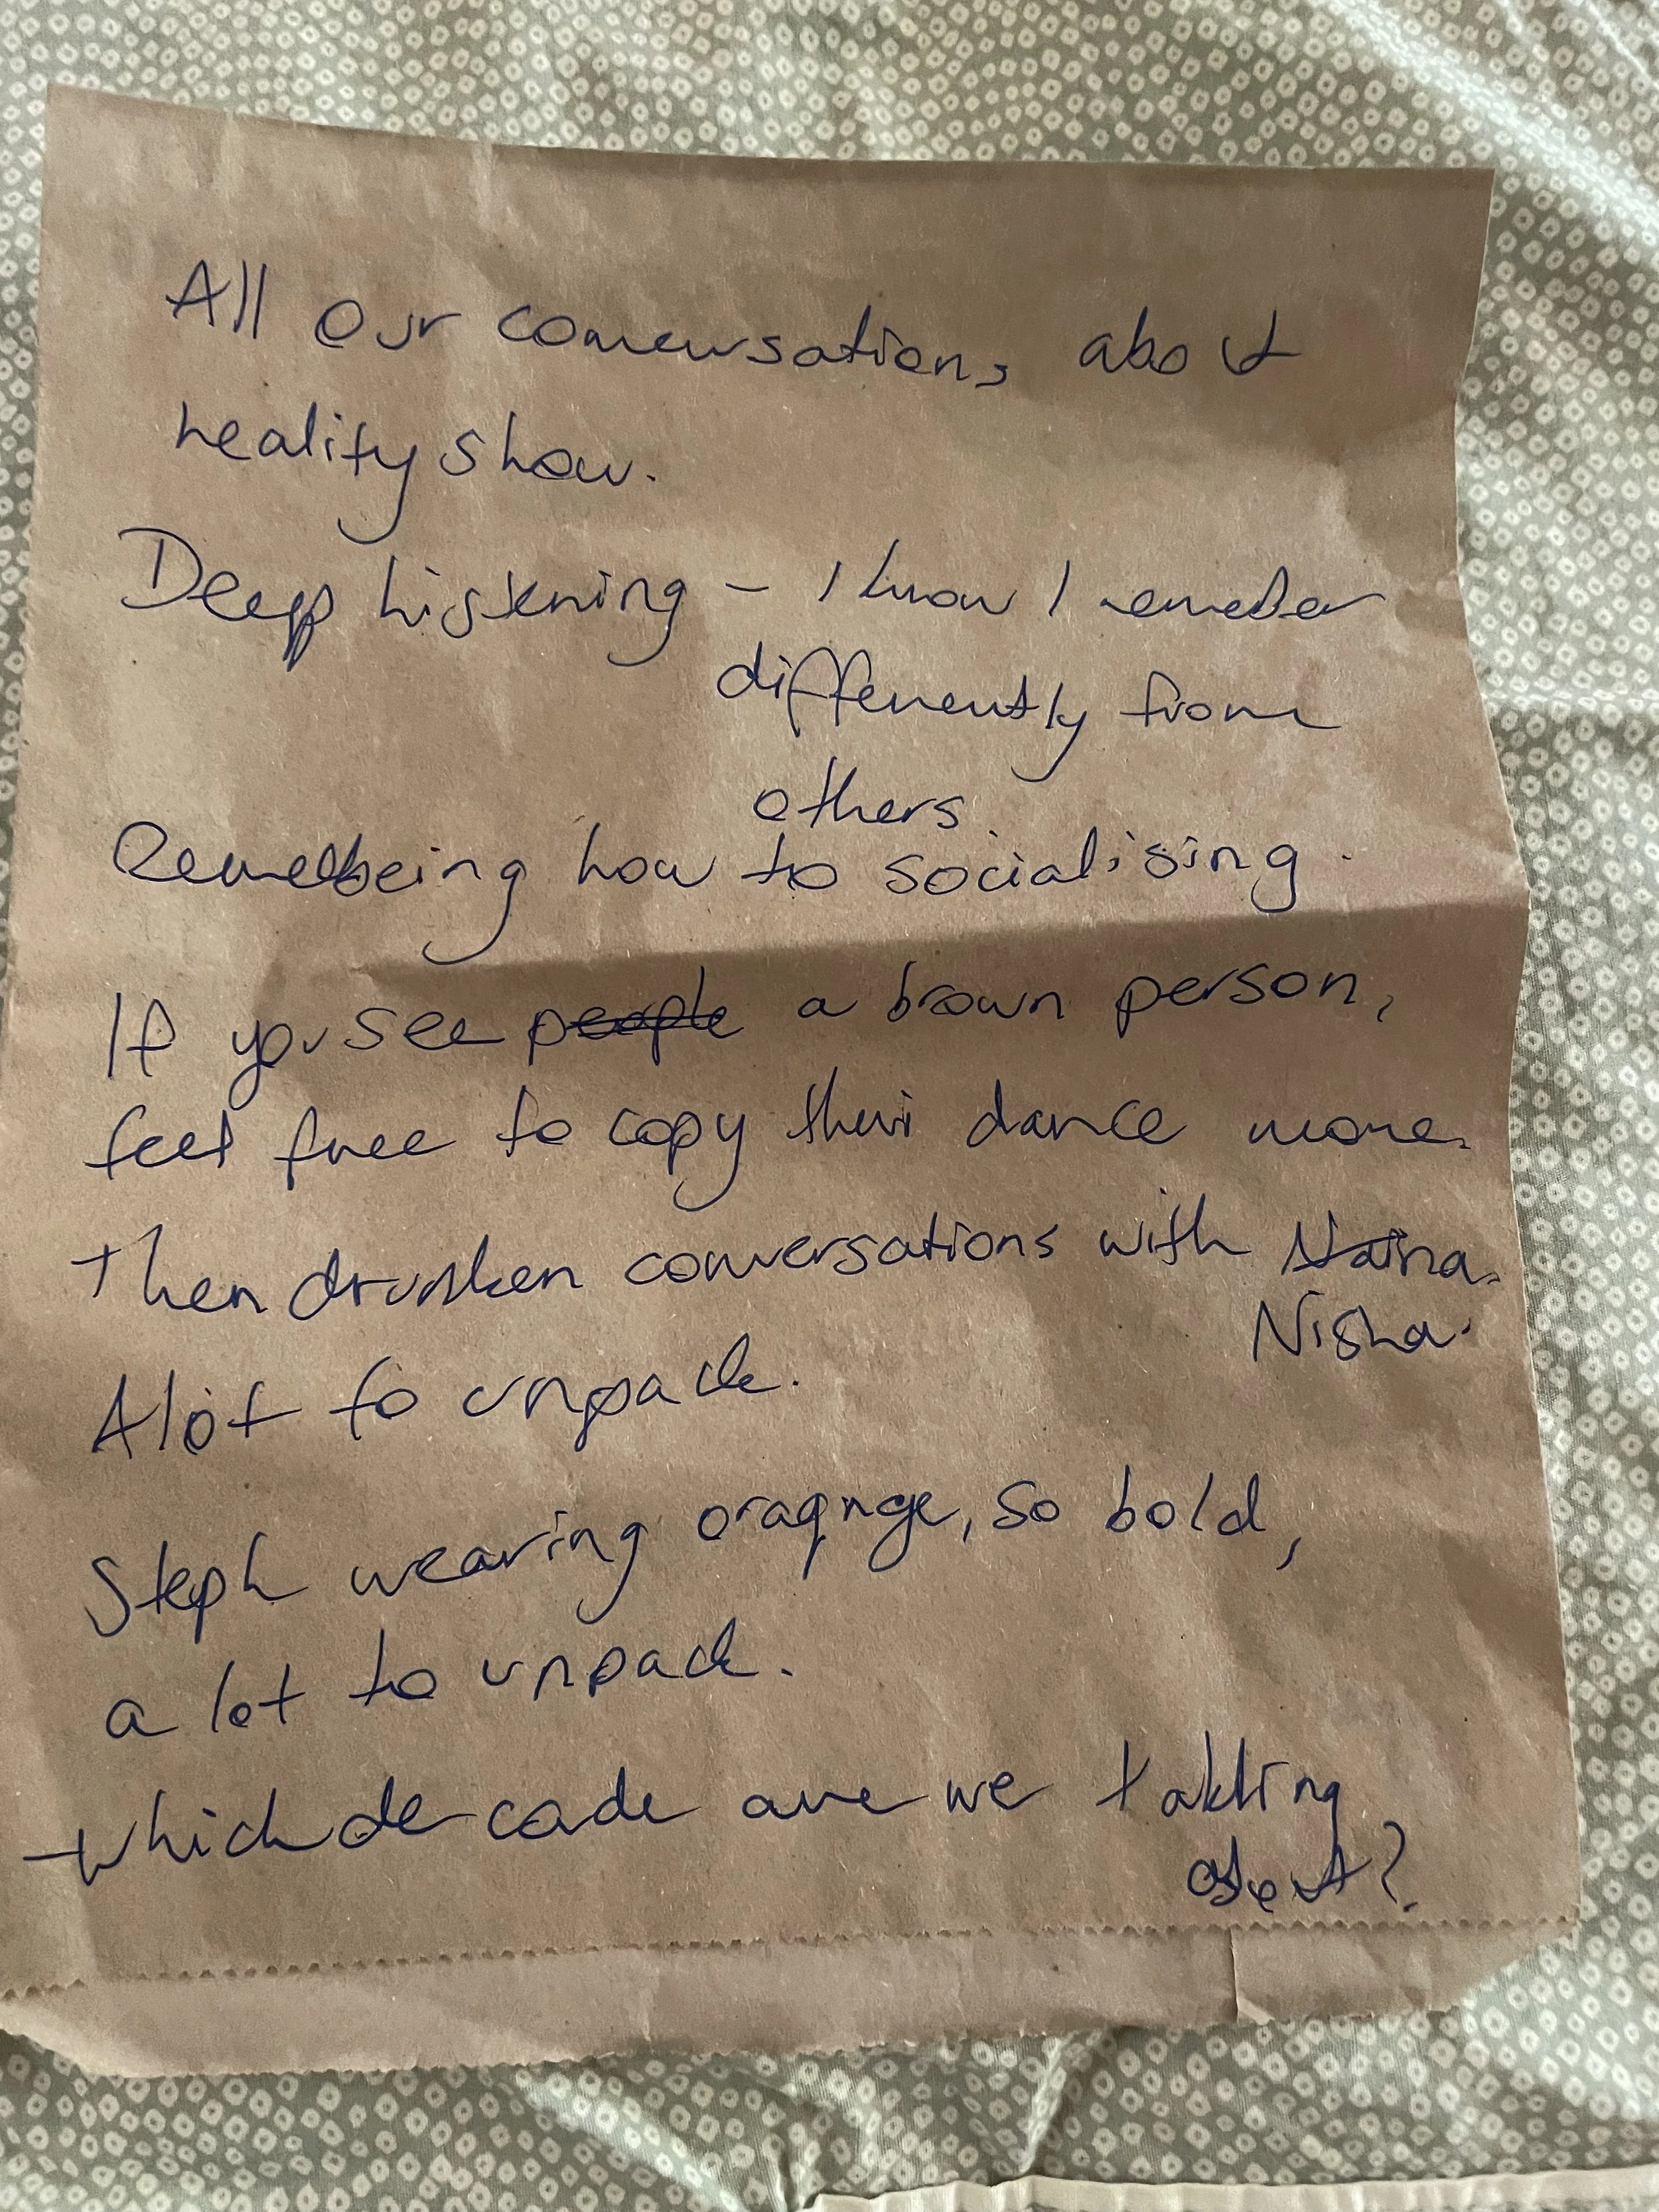 All our conversations about
reality show.
Deep listening - I know I remeber
differently from
others.
Remebeing how to socialising.
If you see people a brown person,
feel free to copy their dance more.
Then drunken conversations with Naina.
Nisha.
A lot to unpack.
Steph wearing oragnge, so bold,
a lot to unpack.
which decade are we takling
about?